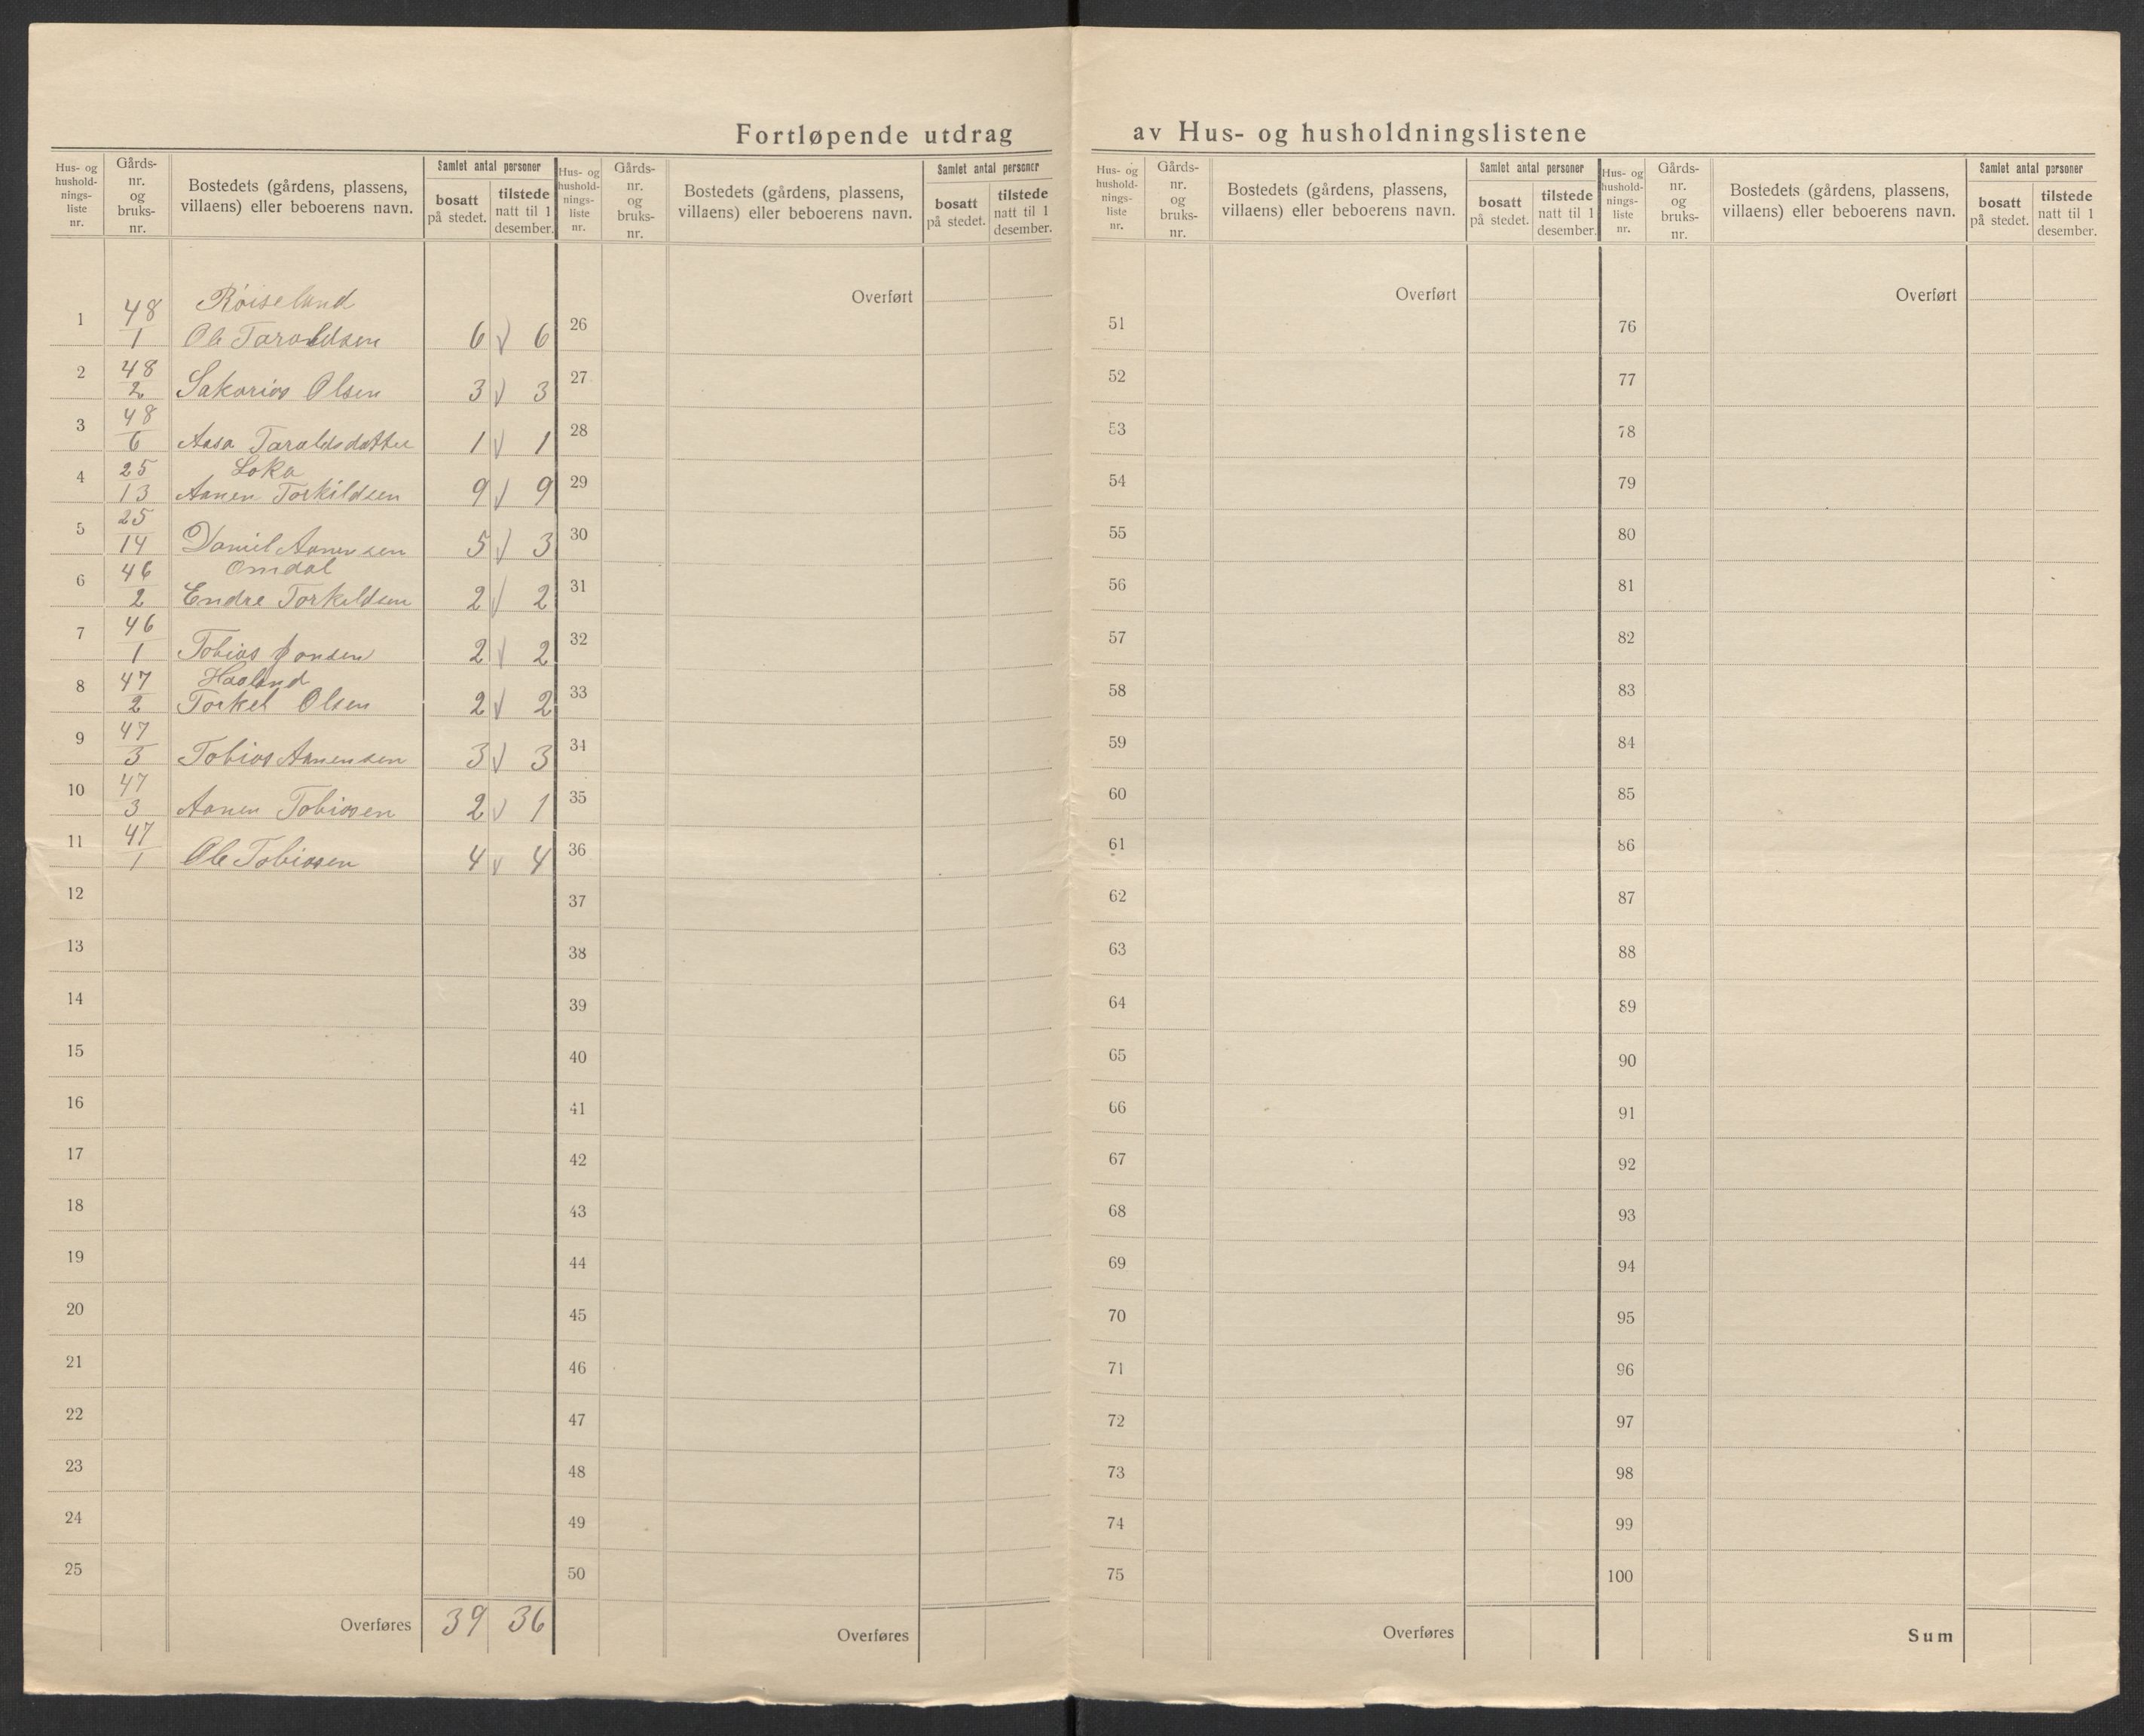 Fortløpende utdrag av Hus- og husholdningslistene
Hus- og hushold- nings- liste nr.
Gårds- nr. og bruks- nr.
Bostedets (gårdens, plassens, villaens) eller beboerens navn.
Samlet antal personer
bosatt på stedet.
tilstede natt til 1 desember.
Hus- og hushold- nings- liste nr.
Gårds- nr. og bruks- nr.
Bostedets (gårdens, plassens, villaens) eller beboerens navn.
Samlet antal personer
bosatt på stedet.
tilstede natt til 1 desember.
Hus- og hushold- nings- liste nr.
Gårds- nr. og bruks- nr.
Bostedets (gårdens, plassens, villaens) eller beboerens navn.
Samlet antal personer
bosatt på stedet.
tilstede natt til 1 desember.
Hus- og hushold- nings- liste nr.
Gårds- nr. og bruks- nr.
Bostedets (gårdens, plassens, villaens) eller beboerens navn.
Samlet antal personer
bosatt på stedet.
tilstede natt til 1 desember.
Røiseland
1 48/1 Ole Taraldsen 6 √ 6
2 48/2 Sakarias Olsen 3 √ 3
3 48/6 Aasa Taraldsdatter 1 √ 1
Loka
4 25/13 Aanen Torkildsen 9 √ 9
5 25/14 Daniel Aanensen 5 √ 3
Omdal
6 46/2 Endre Torkildsen 2 √ 2
7 46/1 Tobias Jonsen 2 √ 2
Haaland
8 47/2 Torkel Olsen 2 √ 2
9 47/3 Tobias Aanensen 3 √ 3
10 47/3 Aanen Tobiasen 2 √ 1
11 47/1 Ole Tobiasen 4 √ 4
12
13
14
15
16
17
18
19
20
21
22
23
24
25
Overføres 39 36
Overført
26
27
28
29
30
31
32
33
34
35
36
37
38
39
40
41
42
43
44
45
46
47
48
49
50
Overføres
Overført
51
52
53
54
55
56
57
58
59
60
61
62
63
64
65
66
67
68
69
70
71
72
73
74
75
Overføres
Overført
76
77
78
79
80
81
82
83
84
85
86
87
88
89
90
91
92
93
94
95
96
97
98
99
100
Sum